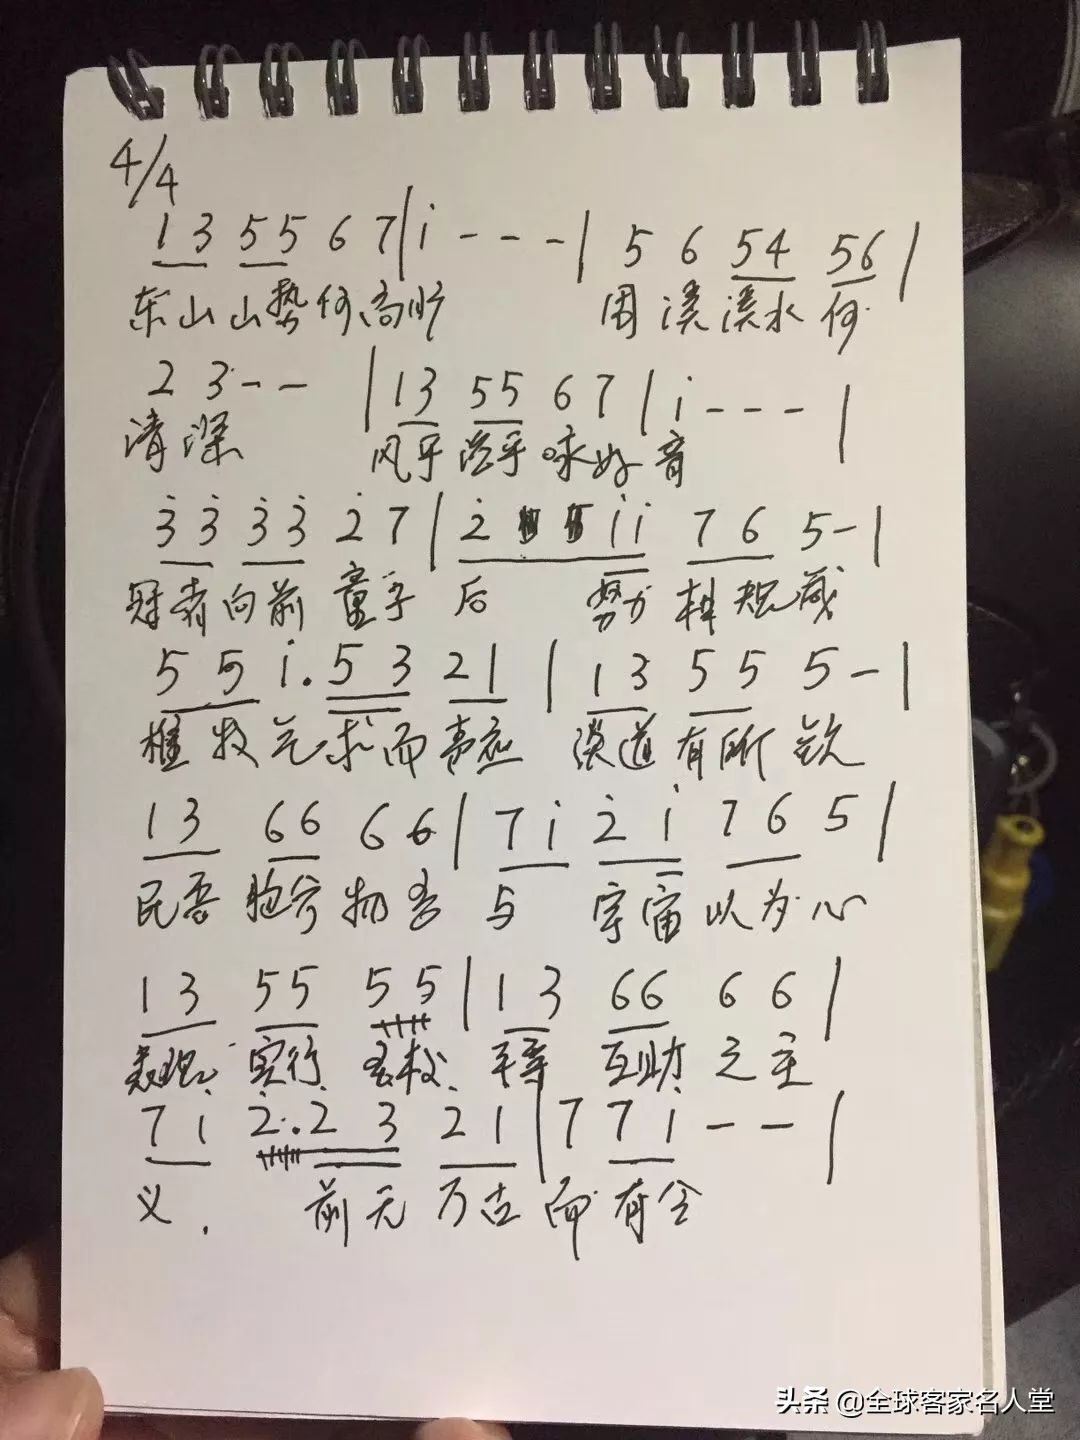 4/4
1 3 5 5 6 7 | i - - - | 5 6 5 4 5 6 |
东山山势何高 周溪溪水何
2 3 - - | 1 3 5 5 6 7 | i - - - |
清深 风乎 乎咏好音
3 3 3 3 2 7 | 2 i i 7 6 5 - |
冠者向前童子后 努力 规箴
5 5 i . 5 3 2 1 | 1 3 5 5 5 - |
求而 应 道有所钦
1 3 6 6 6 6 | 7 i 2 i 7 6 5 |
民吾胞兮物吾与 宇宙以为心
1 3 5 5 5 5 | 1 3 6 6 6 6 |
实行 平等 互助之主
7 i 2 . 2 3 2 1 | 7 7 i - - |
义. 前无万古而有今
头条 @全球客家名人堂